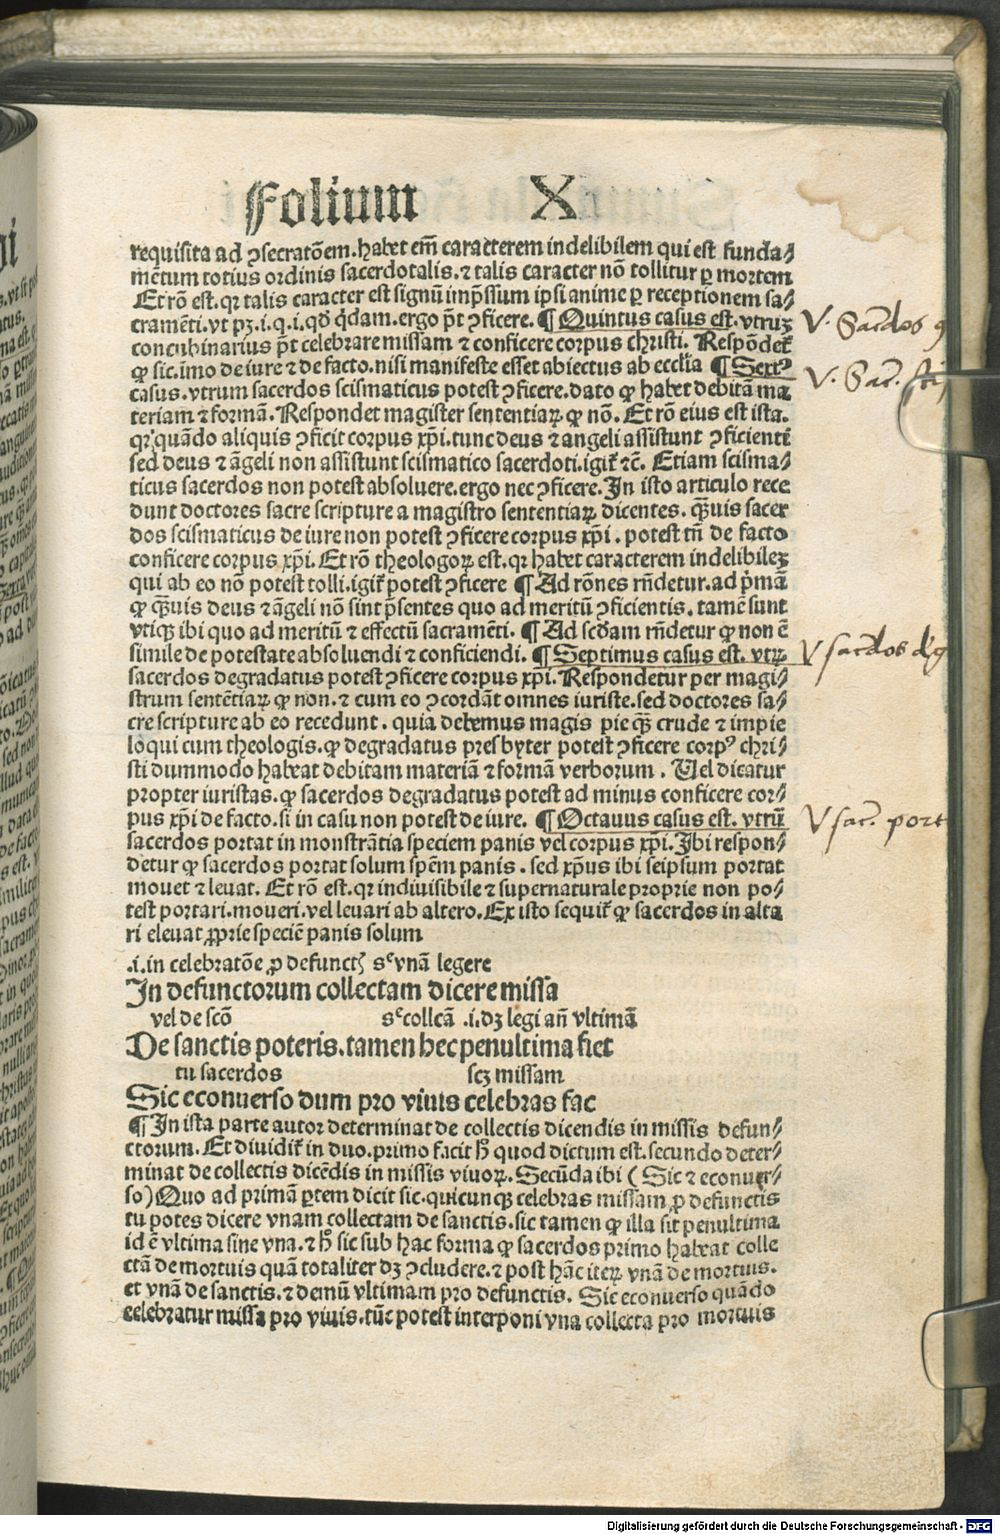 Folium X
requisita ad ꝯsecratõem. habet em̃ caracterem indelibilem qui est funda⸗
mẽtum totius ordinis sacerdotalis. ⁊ talis caracter nõ tollitur ꝑ mortem
Et rõ est. qꝛ talis caracter est signũ imp̃ssum ipsi anime ꝑ receptionem sa⸗
cramẽti. vt pꝫ .i. q. i. qđ q̃dam. ergo põt ꝯficere. ¶ Quintus casus est. vtruꝫ
V. Sacrdos
concubinarius põt celebrare missam ⁊ conficere corpus christi. Respõdet᷑
ꝙ sic. imo de iure ⁊ de facto. nisi manifeste esset abiectus ab ecclia ¶ Sextꝰ
V. Sac.
casus. vtrum sacerdos scismaticus potest ꝯficere. dato ꝙ habet debitã ma
teriam ⁊ formã. Respondet magister sententiaꝝ ꝙ nõ. Et rõ eius est ista.
qꝛ quãdo aliquis ꝯficit corpus xp̃i. tunc deus ⁊ angeli assistunt ꝯficienti
sed deus ⁊ ãgeli non assistunt scismatico sacerdoti. igit᷑ ⁊c̃. Etiam scisma⸗
ticus sacerdos non potest absoluere. ergo nec ꝯficere. In isto articulo rece
dunt doctores sacre scripture a magistro sententiaꝝ dicentes. qᷓuis sacer
dos scismaticus de iure non potest ꝯficere corpus xp̃i. potest tñ de facto
conficere corpus xp̃i. Et rõ theologoꝝ est. qꝛ habet caracterem indelibileꝫ
qui ab eo nõ potest tolli. igit᷑ potest ꝯficere ¶ Ad rõnes rñdetur. ad p̃mã
ꝙ qᷓuis deus ⁊ ãgeli nõ sint p̃sentes quo ad meritũ ꝯficientis. tamẽ sunt
vtiqꝫ ibi quo ad meritũ ⁊ effectũ sacramẽti. ¶ Ad scđam rñdetur ꝙ non ẽ
simile de potestate absoluendi ⁊ conficiendi. ¶ Septimus casus est. vtꝝ
V sacrdos
sacerdos degradatus potest ꝯficere corpus xp̃i. Respondetur per magi⸗
strum sentẽtiaꝝ ꝙ non. ⁊ cum eo ꝯcordãt omnes iuriste. sed doctores sa⸗
cre scripture ab eo recedunt. quia debemus magis pie qᷓ crude ⁊ impie
loqui cum theologis. ꝙ degradatus presbyter potest ꝯficere corpꝰ chri⸗
sti dummodo habeat debitam materiã ⁊ formã verborum. Uel dicatur
propter iuristas. ꝙ sacerdos degradatus potest ad minus conficere cor⸗
pus xp̃i de facto. si in casu non potest de iure. ¶ Octauus casus est. vtrũ
V sac. port
sacerdos portat in monstrãtia speciem panis vel corpus xp̃i. Ibi respon⸗
detur ꝙ sacerdos portat solum spẽm panis. sed xp̃us ibi seipsum portat
mouet ⁊ leuat. Et rõ est. qꝛ indiuisibile ⁊ supernaturale proprie non po⸗
test portari. moueri. vel leuari ab altero. Ex isto sequit᷑ ꝙ sacerdos in alta
ri eleuat ꝓprie speciẽ panis solum
.i. in celebratõe ꝓ defunct sᵉ vnã legere
In defunctorum collectam dicere missa
vel de scõ sᵉ collcã .i. dꝫ legi añ vltimã
De sanctis poteris. tamen hec penultima fiet
tu sacerdos scꝫ missam
Sic econuerso dum pro viuis celebras fac
¶ In ista parte autor determinat de collectis dicendis in missis defun⸗
ctorum. Et diuidit᷑ in duo. primo facit h̃ quod dictum est. secundo deter⸗
minat de collectis dicẽdis in missis viuoꝝ. Secũda ibi (Sic ⁊ econuer⸗
so) Quo ad primã ꝑtem dicit sic. quicunqꝫ celebras missam ꝓ defunctis
tu potes dicere vnam collectam de sanctis. sic tamen ꝙ illa sit penultima
id ẽ vltima sine vna. ⁊ h̃ sic sub hac forma ꝙ sacerdos primo habeat colle
ctã de mortuis quã totaliter dꝫ ꝯcludere. ⁊ post hãc iteꝝ vnã de mortuis.
et vnã de sanctis. ⁊ demũ vltimam pro defunctis. Sic econuerso quãdo
celebratur missa pro viuis. tũc potest interponi vna collecta pro mortuis
Digitalisierung gefördert durch die Deutsche Forschungsgemeinschaft - DFG